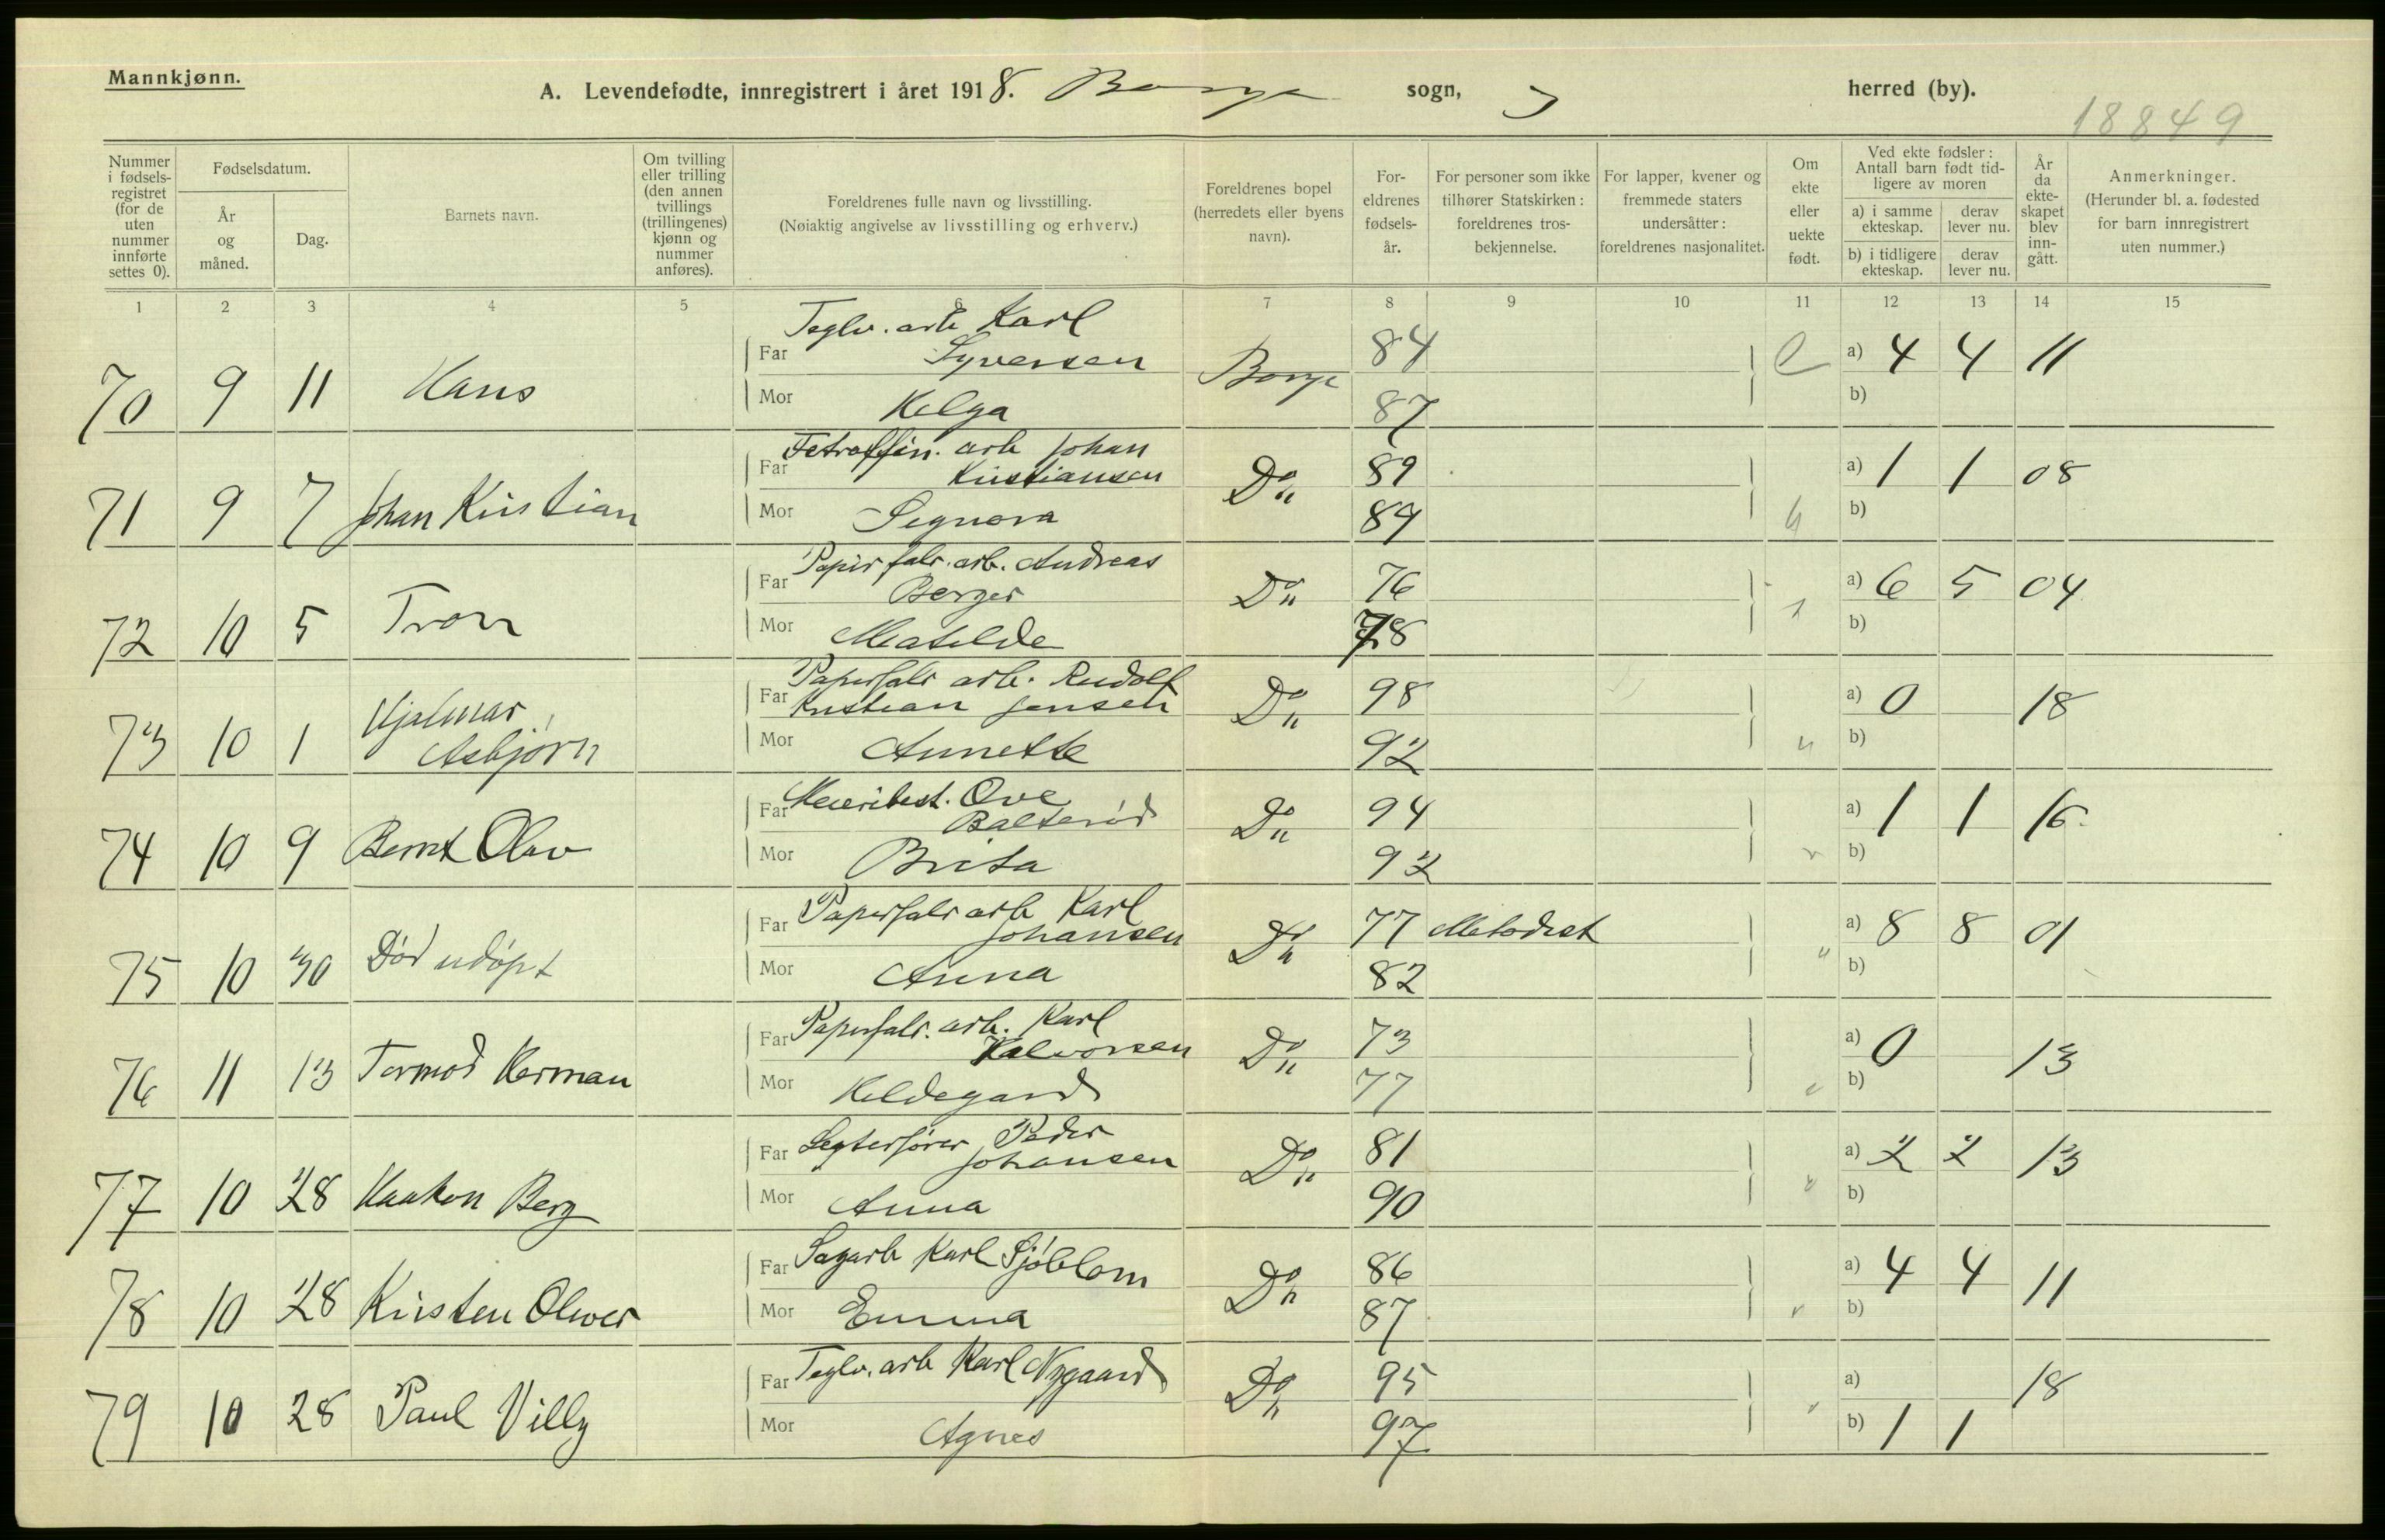 Mannkjønn.
A. Levendefødte, innregistrert i året 1918. Borge sogn, herred (by).
18849
Nummer i fødsels-registret (for de uten nummer innførte settes 0).
Fødselsdatum.
År og måned.
Dag.
Barnets navn.
Om tvilling eller trilling (den annen tvillings (trillingenes) kjønn og nummer anføres).
Foreldrenes fulle navn og livsstilling.
(Nøiaktig angivelse av livsstilling og erhverv.)
Foreldrenes bopel (herredets eller byens navn).
For-eldrenes fødsels-år.
For personer som ikke tilhører Statskirken: foreldrenes tros-bekjennelse.
For lapper, kvener og fremmede staters undersåtter: foreldrenes nasjonalitet.
Om ekte eller uekte født.
Ved ekte fødsler: Antall barn født tid-ligere av moren
a) i samme ekteskap.
derav lever nu.
b) i tidligere ekteskap.
derav lever nu.
År da ekte-skapet blev inn-gått.
Anmerkninger.
(Herunder bl. a. fødested for barn innregistrert uten nummer.)
1 2 3 4 5 6 7 8 9 10 11 12 13 14 15
70 9 11 Hans Far Teglv. arb Karl Syversen Borge 84 e a) 4 4 11
Mor Helga 87 b)
71 9 7 Johan Kristian Far arb Johan Kristiansen Do 89 a) 1 1 08
Mor Signora 89 b)
72 10 5 Tron Far Papirfabr. arb. Andreas Berger Do 76 a) 6 5 04
Mor Matilde 78 b)
73 10 1 Hjalmar Asbjørn Far Papirfabr arb. Rudolf Kristian Jensen Do 98 a) 0 18
Mor Annette 92 b)
74 10 9 Bernt Olav Far Meieribest. Ove Balterød Do 94 a) 1 1 16
Mor Brita 92 b)
75 10 30 Død udøpt Far Papirfabr arb Karl Johansen Do 77 Metodist a) 8 8 01
Mor Anna 82 b)
76 11 13 Tormod Herman Far Papirfabr. arb. Karl Halvorsen Do 73 a) 0 13
Mor Hildegard 77 b)
77 10 28 Haakon Berg Far Legterfører Peder Johansen Do 81 a) 2 2 13
Mor Anna 90 b)
78 10 28 Kirsten Oliver Far Sagarb Karl Sjöblom Do 86 a) 4 4 11
Mor Emma 87 b)
79 10 28 Paul Villy Far Teglv. arb Karl Nygaard Do 95 a) 18
Mor Agnes 97 b) 1 1